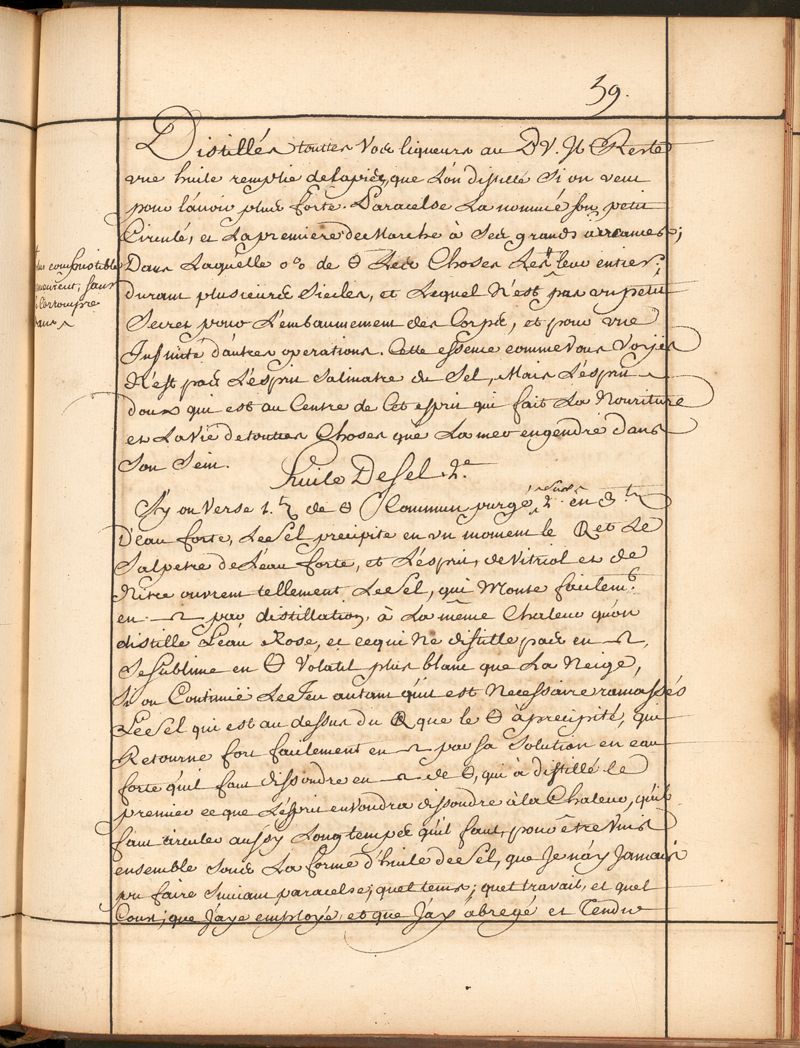 59.
Distillés touttes Vos liqueurs au DV. Jl Reste
vne huile remplie de lapis, que l'on distille Si on veut
pour l'auoir plus forte. Paracelse La nommé son petit
Circulé, et La premiere de Marche à Ses grands arcanes;
Dans Laquelle 0% de Θ Les Choses Restt leur entier;
durant plusieurs Siecles, et Lequel N'est pas vn petit
Secret pour L'embaumement des Corps, et pour vne
Infinité d'autres operations. Cette essence comme Vous Voyés
N'est pas L'esprit Salmatre du Sel, Mais L'esprit
doux qui est au Centre de Cet esprit qui fait La Nouriture
et La Vie de touttes Choses que La mer engendre dans
Son Sein.
combustibles
meurent, sans
Corrompre
Huile De Sel 2.e
Sy on Verse 1. ℔ de Θ Commun purgé 2 en 3 ℔
D'eau forte, Le Sel precipite en vn moment le R et Le
Salpetre de L'eau forte, et L'esprit, de Vitriol et de
Nitre ouvrent tellement Le Sel, qui Monte facilem.t
en par distillation, à La même Chaleur qu'on
distille L'eau Rose, et ce qui Ne distille pas en
Se Sublime en Θ Volatil plus blanc que La Neige,
Si on Continuë Le Feu autant qu'il est Necessaire ramassés
Le Sel qui est au dessus du R que le Θ à precipité, qui
Retourne fort facilement en par sa Solution en eau
forte qu'il faut dissoudre en de Θ, qui à distillé le
premier ce que L'esprit en voudra dissoudre à la Chaleur, qu'il
faut circuler aussy Long temps qu'il faut, pour être Unis
ensemble Sous La forme d'huile de Sel, que Je n'ay Jamais
pu faire Suiuant paracelse; quel tems; quel travail, et quel
Cour; que J'aye employé, et que J'ay abregé et Rendu